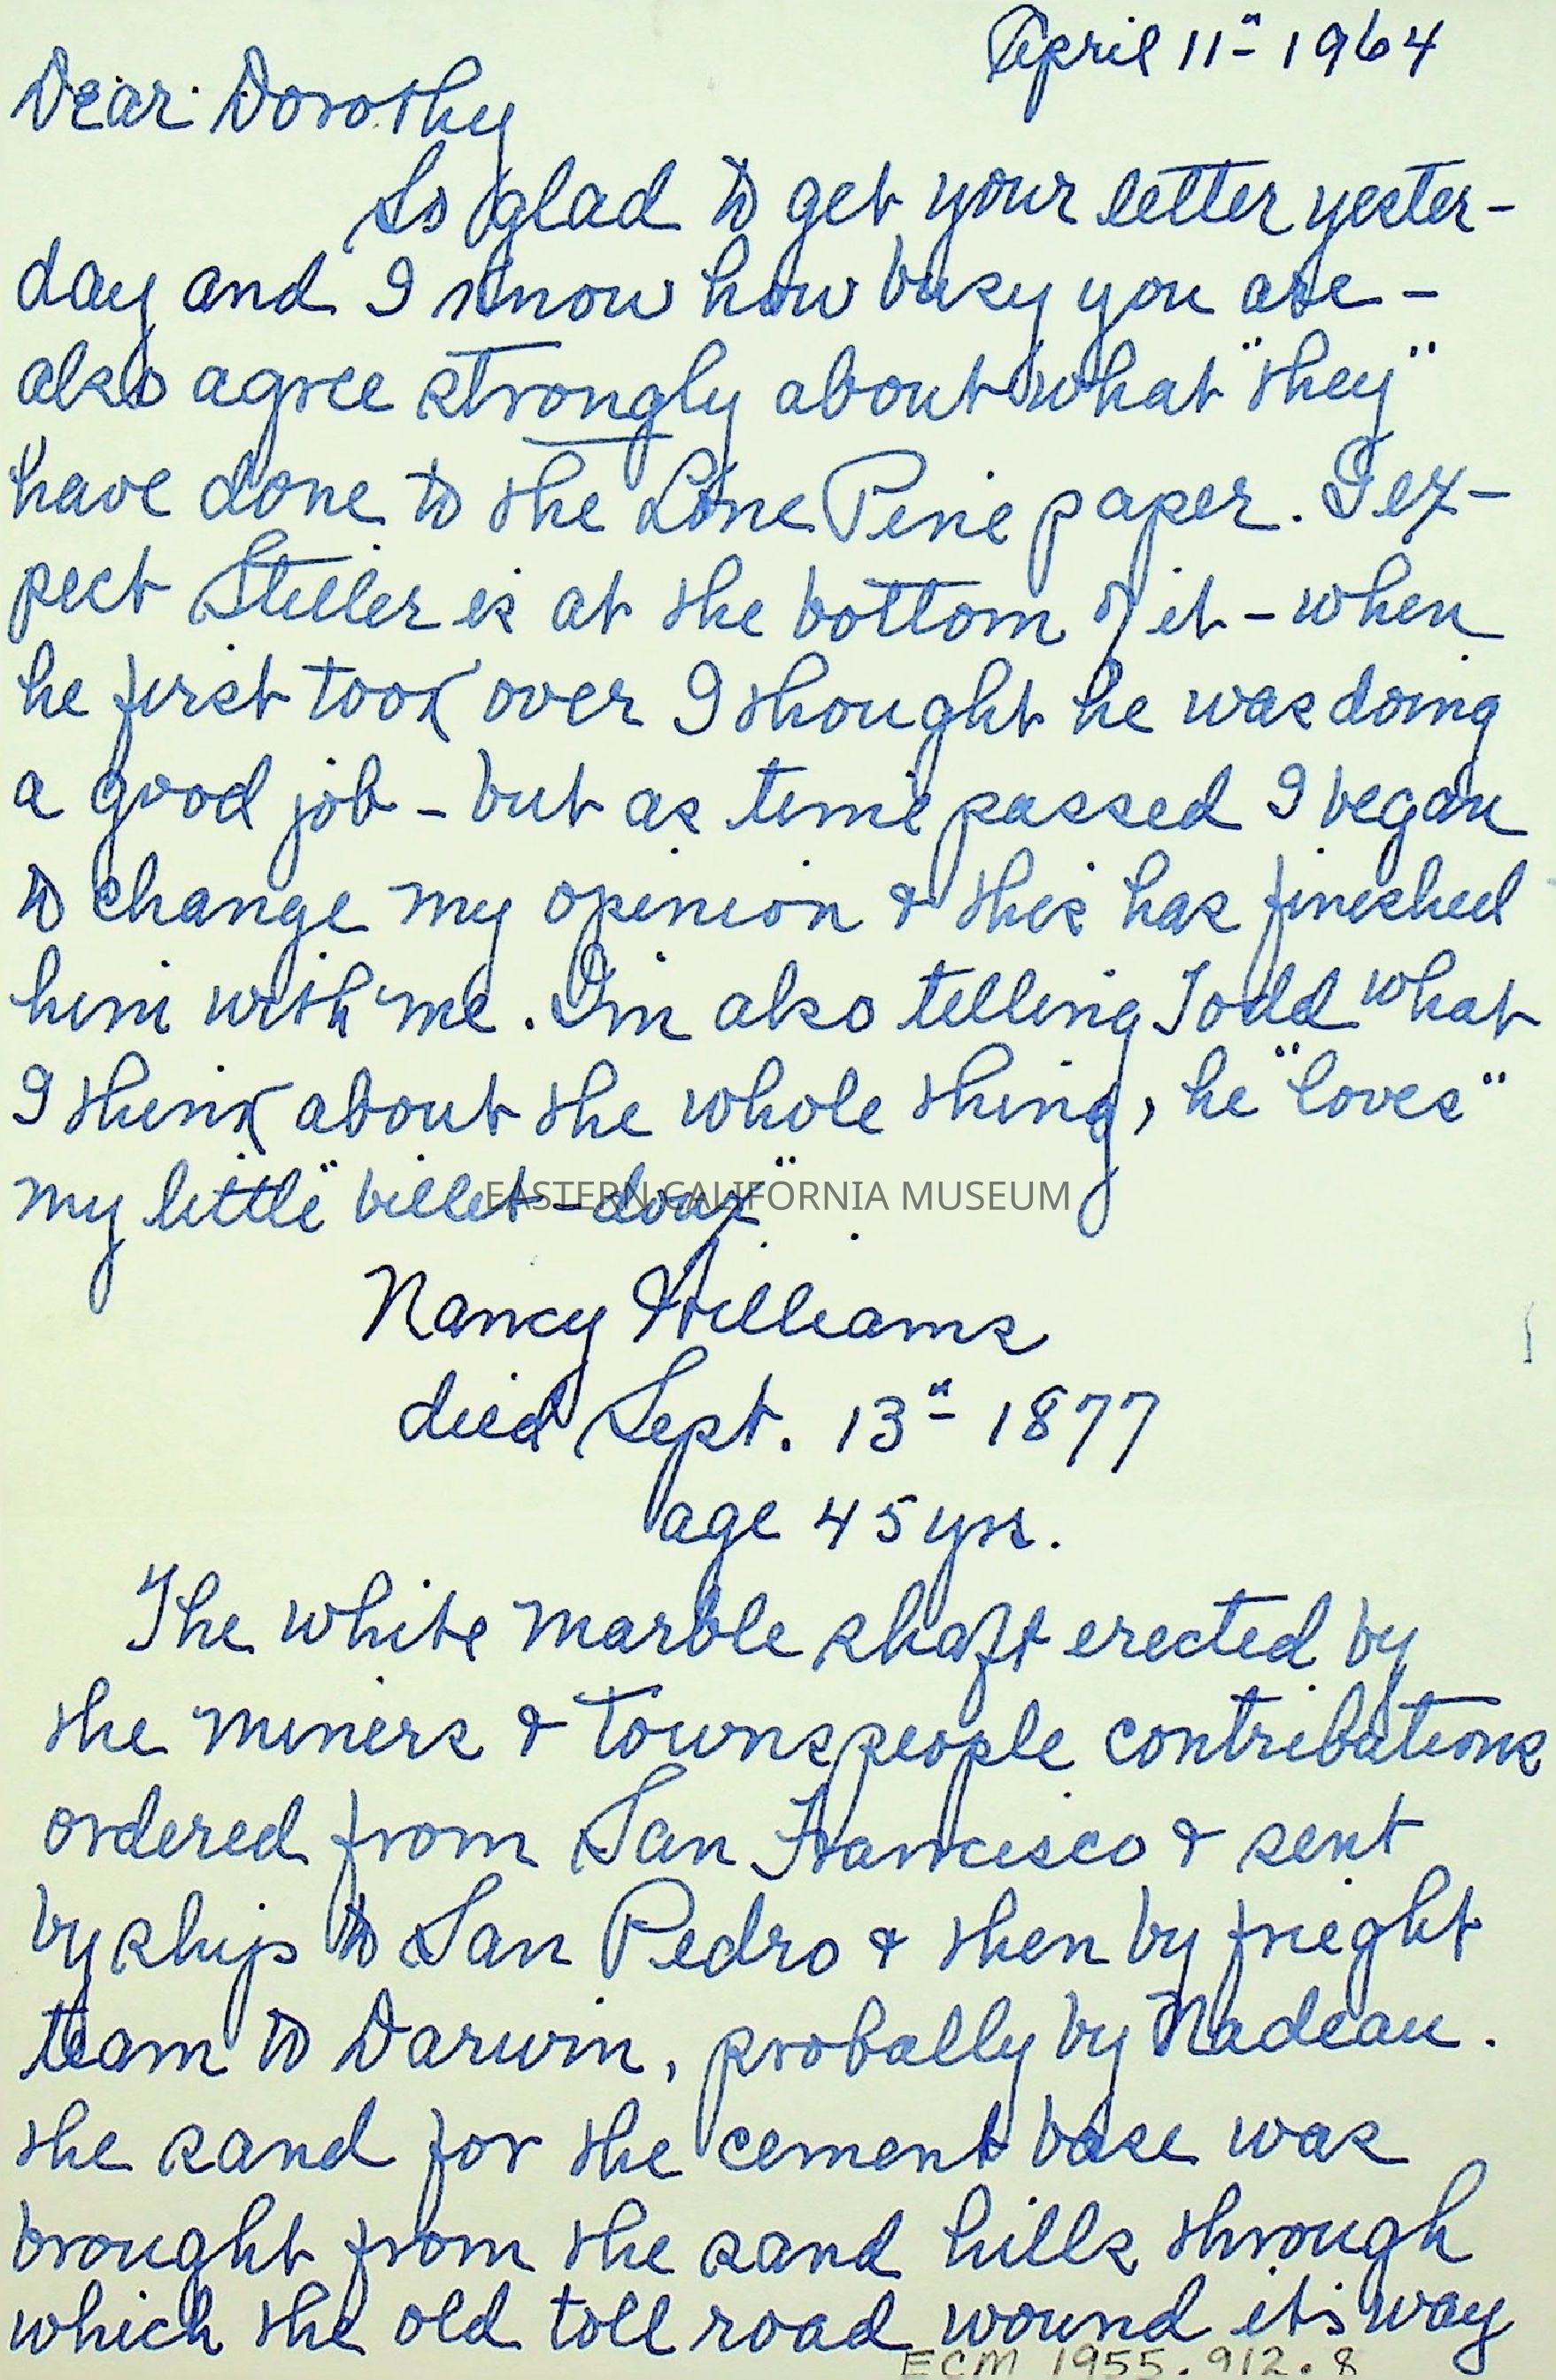 April 11" 1964
Dear Dorothy
So glad to get your letter yester-
day and I know how busy you are -
also agree strongly about what "they"
have done to the Lone Pine paper. I ex-
pect Stiller is at the bottom of it - when
he first took over I thought he was doing
a good job - but as time passed I began
to change my opinion & this has finished
him with me. I'm also telling Todd what
I think about the whole thing, he "loves"
my little "billet-doux"
EASTERN CALIFORNIA MUSEUM
Nancy Williams
died Sept. 13" 1877
age 45 yrs.
The white marble shaft erected by
the miners & townspeople contributions
ordered from San Francisco & sent
by ship to San Pedro & then by frieght
team to Darwin, probally by Nadeau.
the sand for the cement base was
brought from the sand hills through
which the old toll road wound its way
ECM 1955.912.8